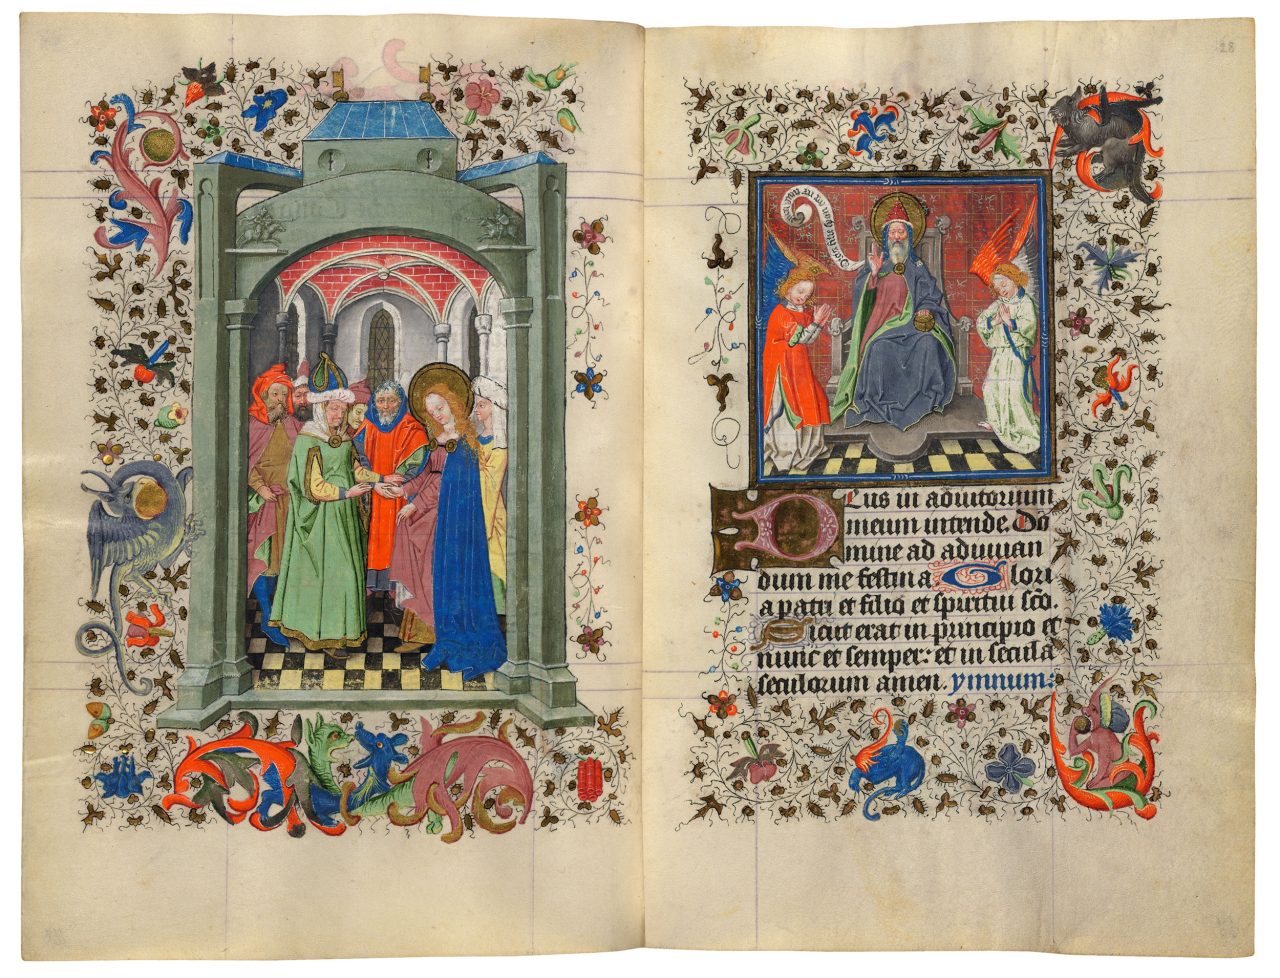 28
Eus in adiutorium
meum intende. Do
mine ad adiuuan
dum me festina Glori
a patri et filio et spiritui sc̃o.
Sicut erat in principio et
nunc et semper: et in secula
seculorum amen. ymnum: